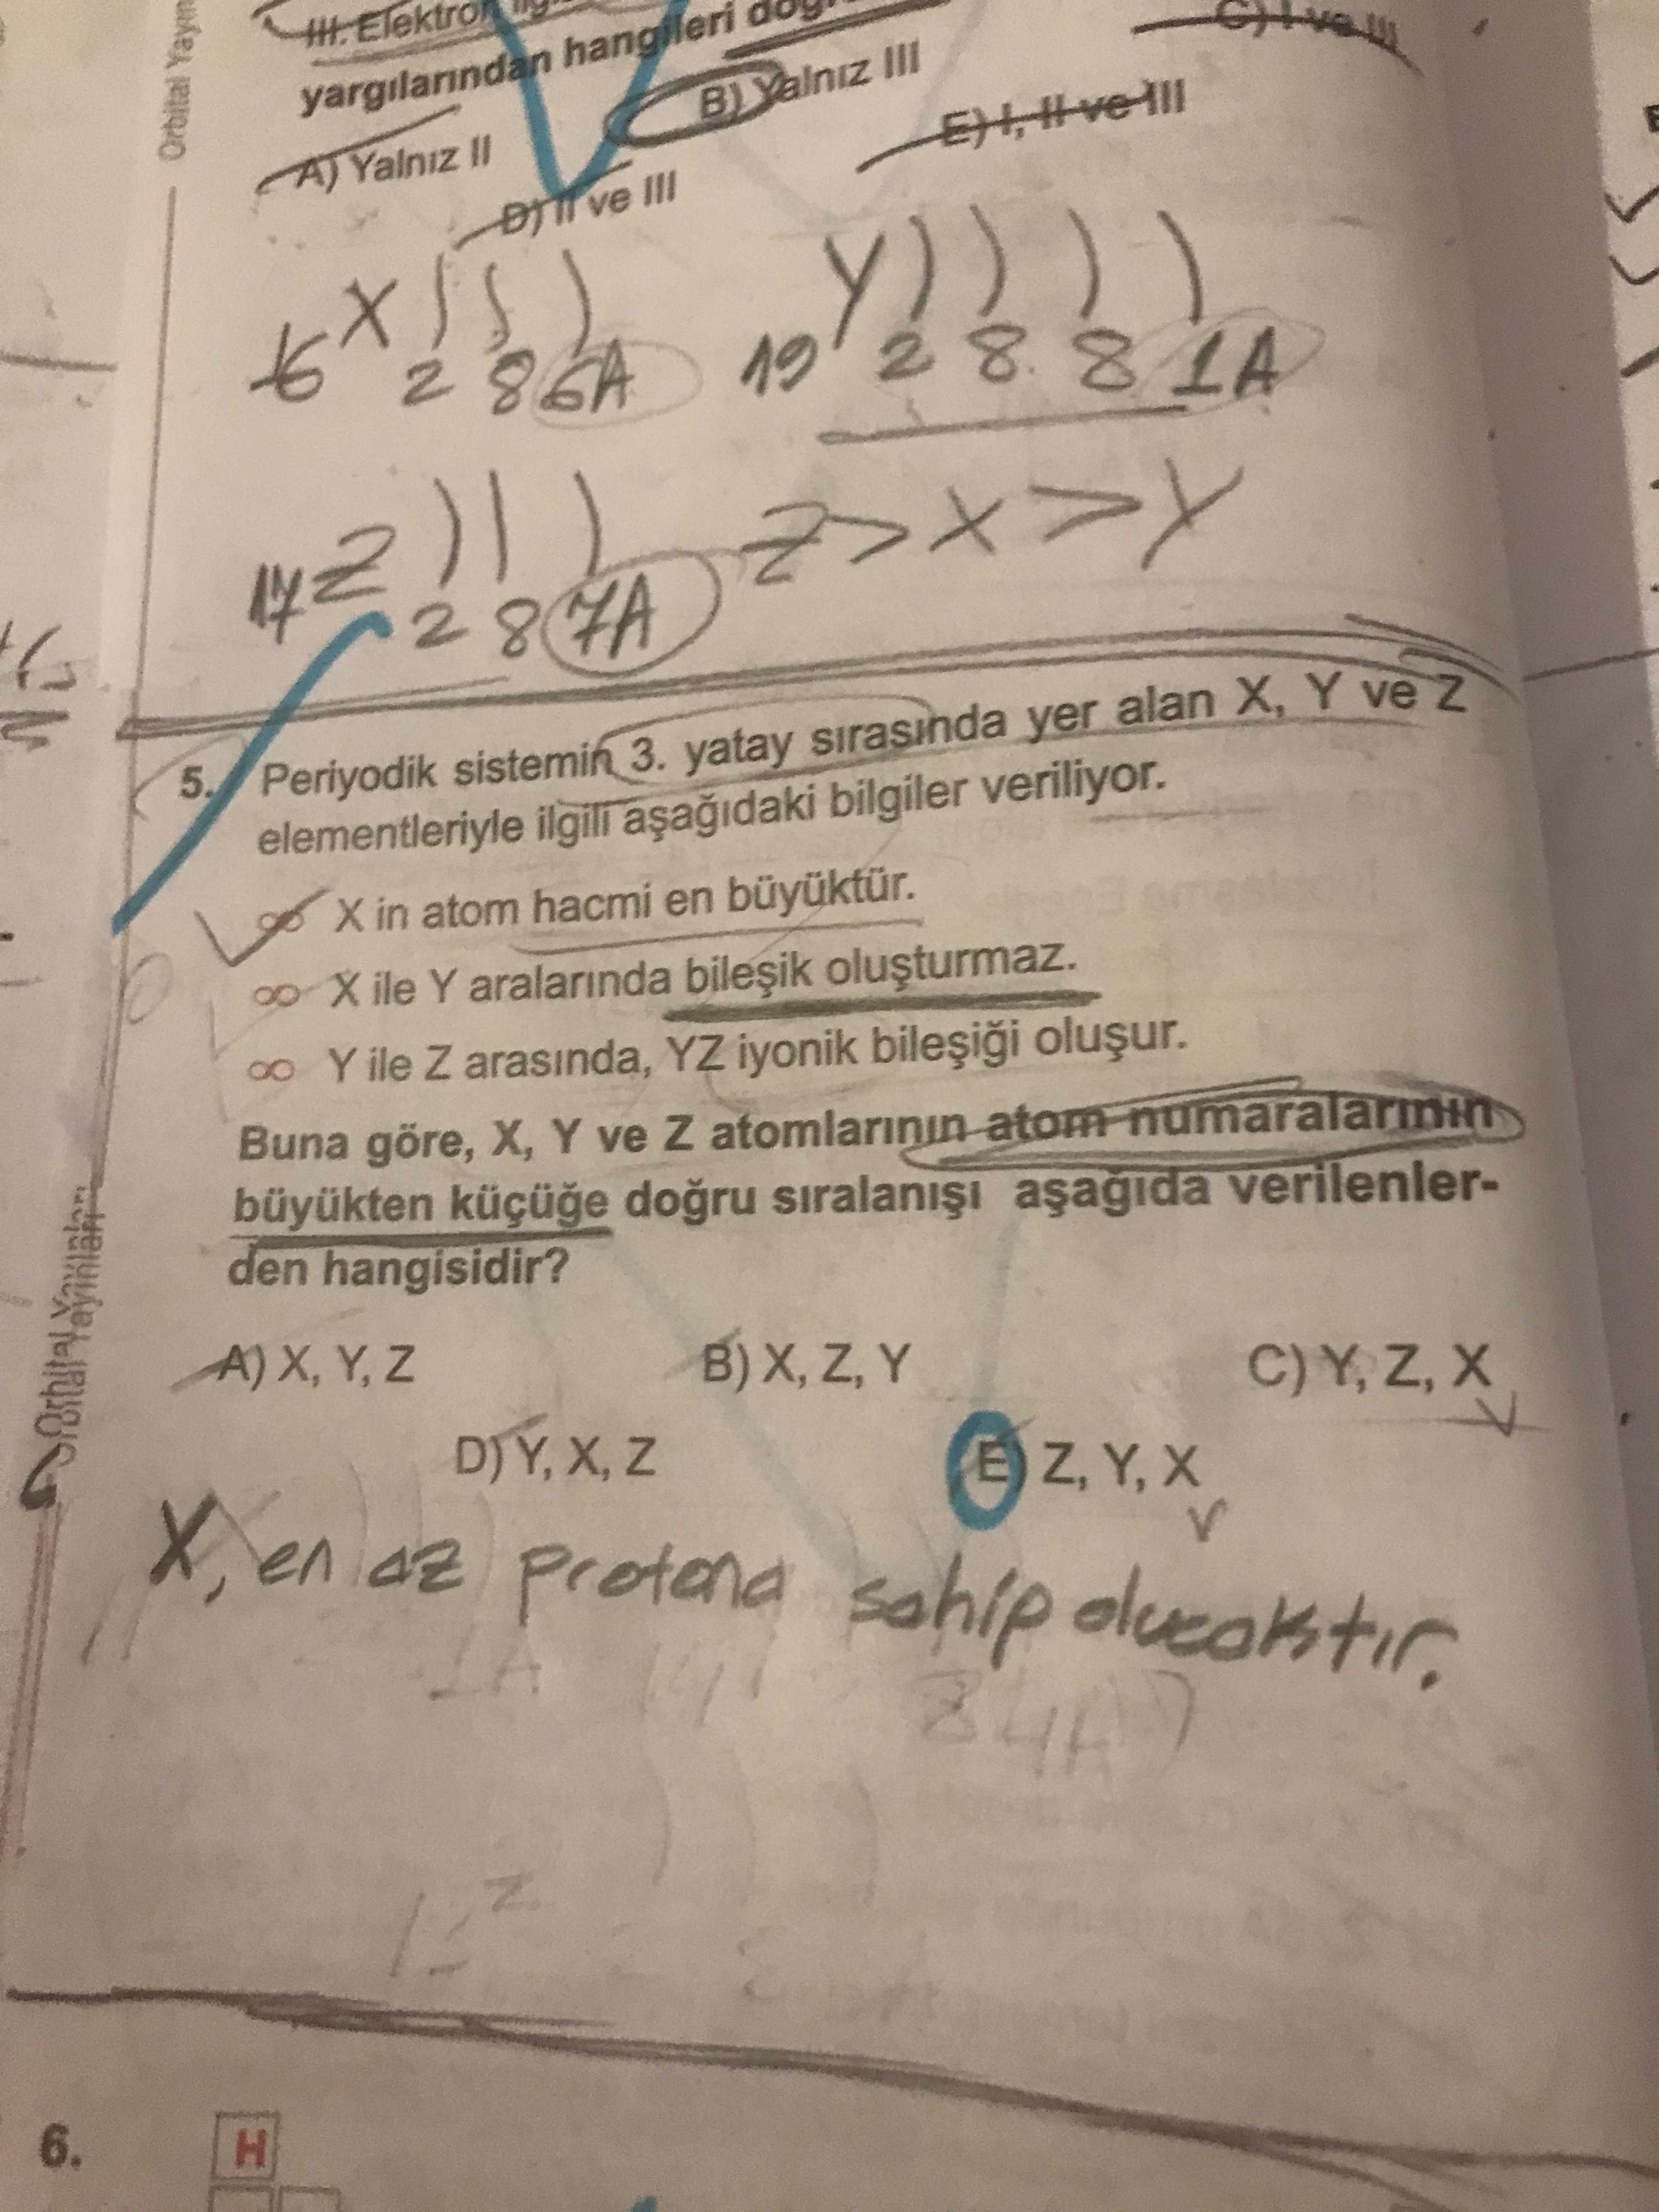 Orbital Yayın
III. Elektron ilg
yargılarından hangileri doğr
A) Yalnız II
B) Yalnız III
C) I ve III
D) II ve III
E) I, II ve III
16 X 2 8 6A
19 Y 2 8 8 1A
17 Z 2 8 7A
Z > X > Y
5. Periyodik sistemin 3. yatay sırasında yer alan X, Y ve Z
elementleriyle ilgili aşağıdaki bilgiler veriliyor.
∞ X in atom hacmi en büyüktür.
∞ X ile Y aralarında bileşik oluşturmaz.
∞ Y ile Z arasında, YZ iyonik bileşiği oluşur.
Buna göre, X, Y ve Z atomlarının atom numaralarının
büyükten küçüğe doğru sıralanışı aşağıda verilenler-
den hangisidir?
A) X, Y, Z
B) X, Z, Y
C) Y, Z, X
D) Y, X, Z
E) Z, Y, X
X, en az protona sahip olucaktır.
Orbital Yayınları
6.
H